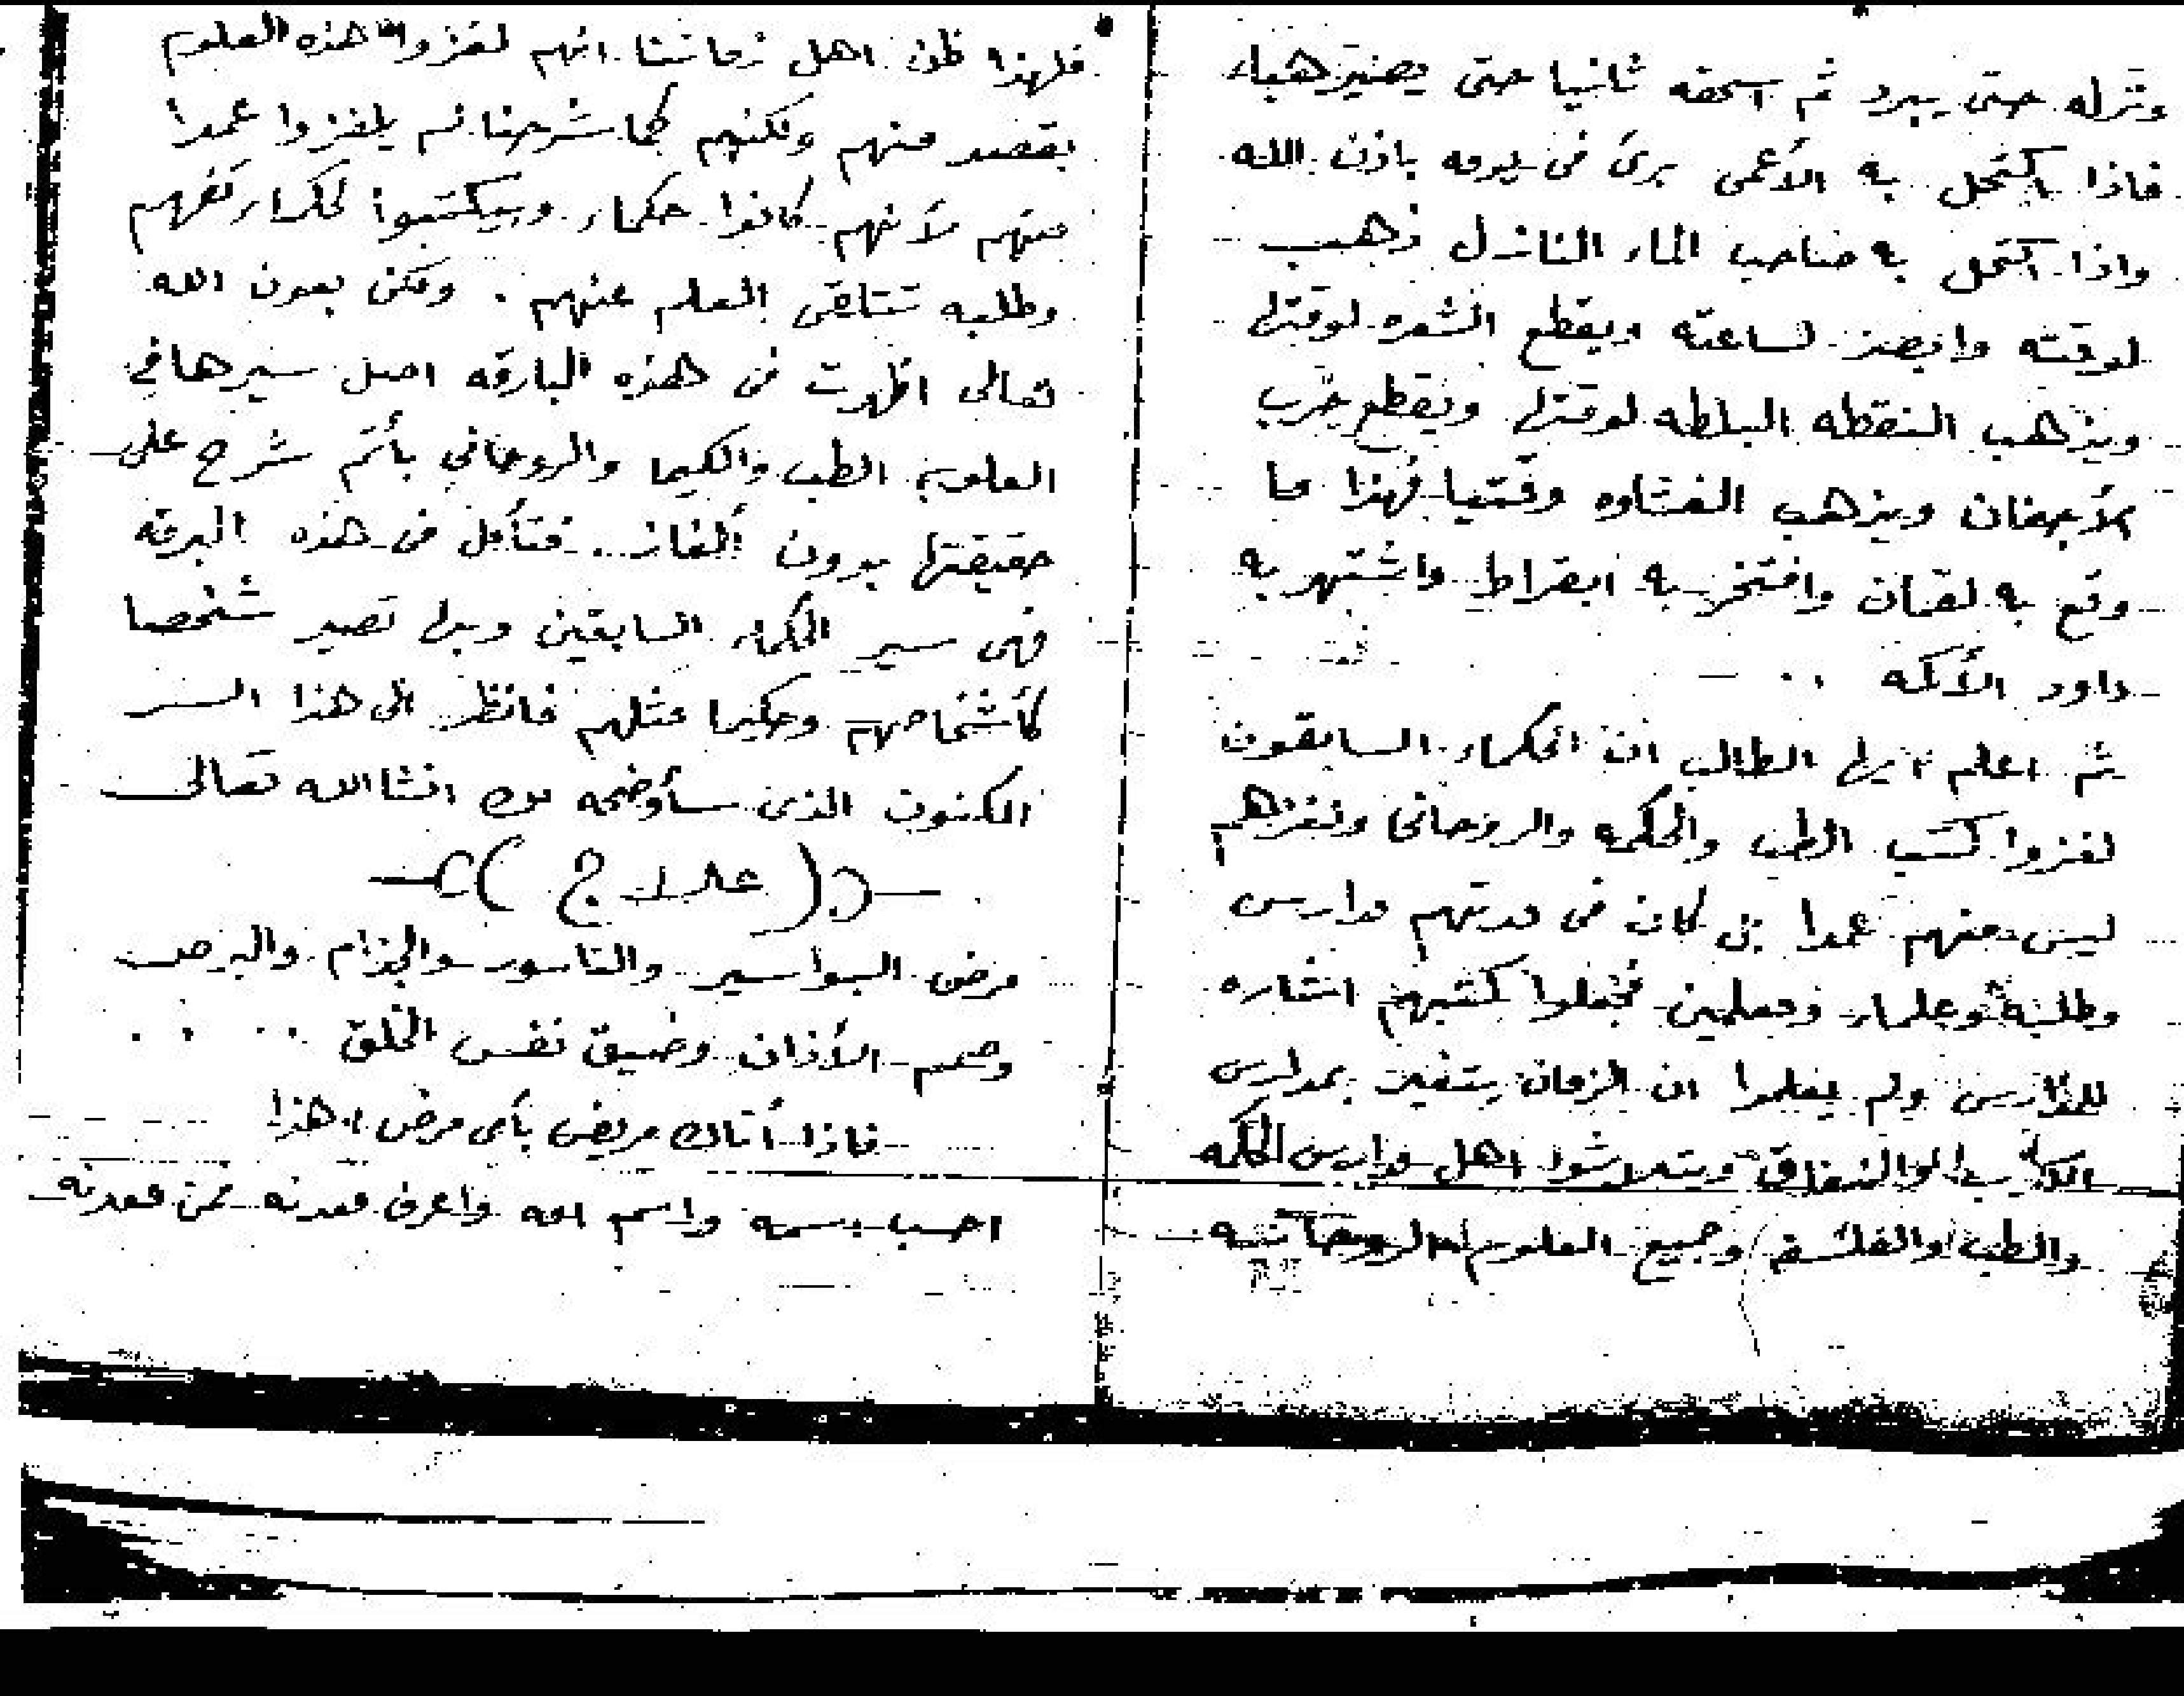 وتنزله حتى يبرد ثم اسحقه ثانيا حتى يصير هباء
فاذا اكتحل به الأعمى برئ فى يومه باذن الله
واذا اكتحل به صاحب الماء النازل ذهب
لوقته وابصر لساعته ويقطع الشعره لوقتها
ويذهب النقطه البلطه لوقتها ويقطع جرب
الأجفان ويذهب الغشاوه وقتيا فهذا ما
وقع به لقمان وافتخر به ابقراط واشتهر به
داود الأكمه ..
ثم اعلم ايها الطالب ان الحكماء السابقون
لغزوا كتب الطب والحكمه والروحانى ولغزهم
ليس منهم عمدا بل كان فى مدتهم مدارس
وطلبه وعلماء ومعلمين فجعلوا كتبهم اشاره
للمدارس ولم يعلموا ان الزمان يتغير بمدارس
والنفاق ويتلاشوا اهل مدارس الحكمه
والطب والفلسفه وجميع العلوم الروحانيه
فلهذا ظن اهل زماننا انهم لغزوا هذه العلوم
بقصد منهم ولكنهم كما شرحنا لم يلغزوا عمدا
منهم لأنهم كانوا حكماء ويكتبوا لحكماء
وطلبه تتلقى العلم عنهم . ولكن بعون الله
تعالى اظهرت فى هذه البارقه اصل سيرها في
العلوم الطب والكيما والروحاني بأتم شرح على
حقيقتها بدون ألغاز .. فتأمل فى هذه البرقه
فهى سير الحكماء السابقين وبها تصير شخصا
كأشخاصهم وحكيما مثلهم فانظر الى هذا السر
المكنون الذى سأوضحه لك انشاالله تعالى
( علاج )
مرض البواسير والناسور والجزام والبرص
وصمم الأذان وضيق نفس الخلق . . . .
فاذا أتاك مريض بأى مرض هذا
احسب اسمه واسم امه واعرف معدنه فمن معدنه